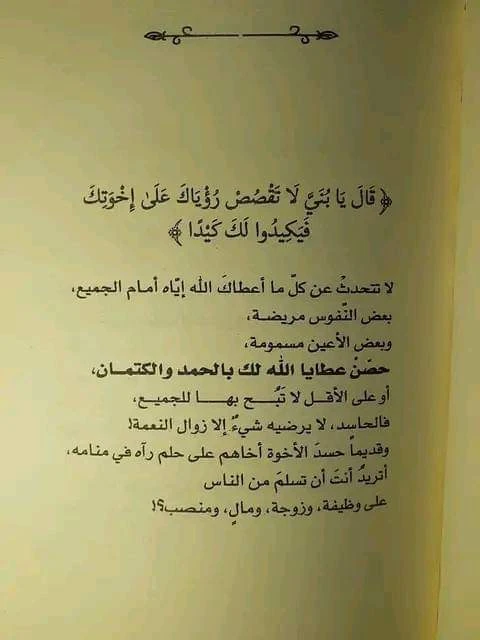 ﴿ قَالَ يَا بُنَيَّ لَا تَقْصُصْ رُؤْيَاكَ عَلَىٰ إِخْوَتِكَ
فَيَكِيدُوا لَكَ كَيْدًا ﴾
لا تتحدثْ عن كلّ ما أعطاكَ الله إيّاه أمام الجميع،
بعض النّفوس مريضة،
وبعض الأعين مسمومة،
حصّنْ عطايا الله لك بالحمد والكتمـان،
أو على الأقل لا تَبُــــح بهـــا للجميع،
فالحاسد، لا يرضيه شيءٌ إلا زوال النعمة!
وقديماً حسدَ الأخوة أخاهم على حلم رآه في منامه،
أتريدُ أنتَ أن تسلمَ من الناس
على وظيفة، وزوجة، ومالٍ، ومنصب؟!